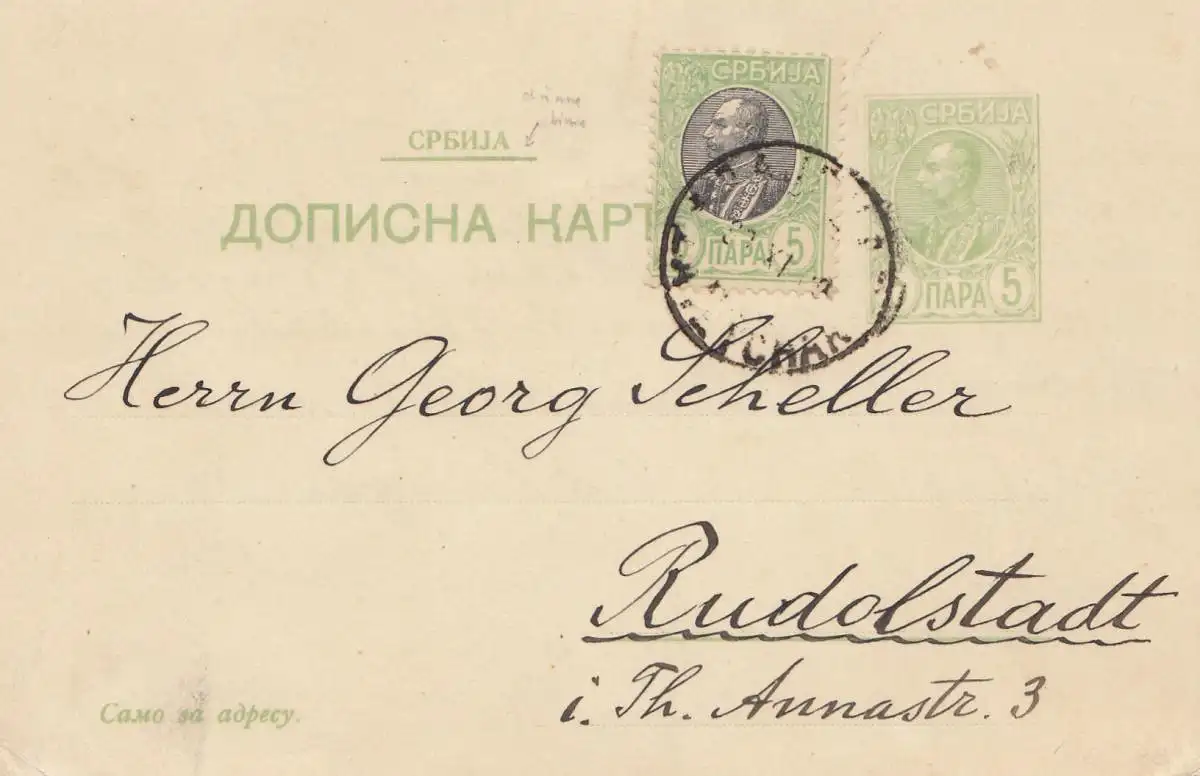 СРБИЈА
ДОПИСНА КАРТ
СРБИЈА
ПАРА 5
СРБИЈА
ПАРА 5
Herrn Georg Scheller
Rudolstadt
i. Th. Annastr. 3
Само за адресу.